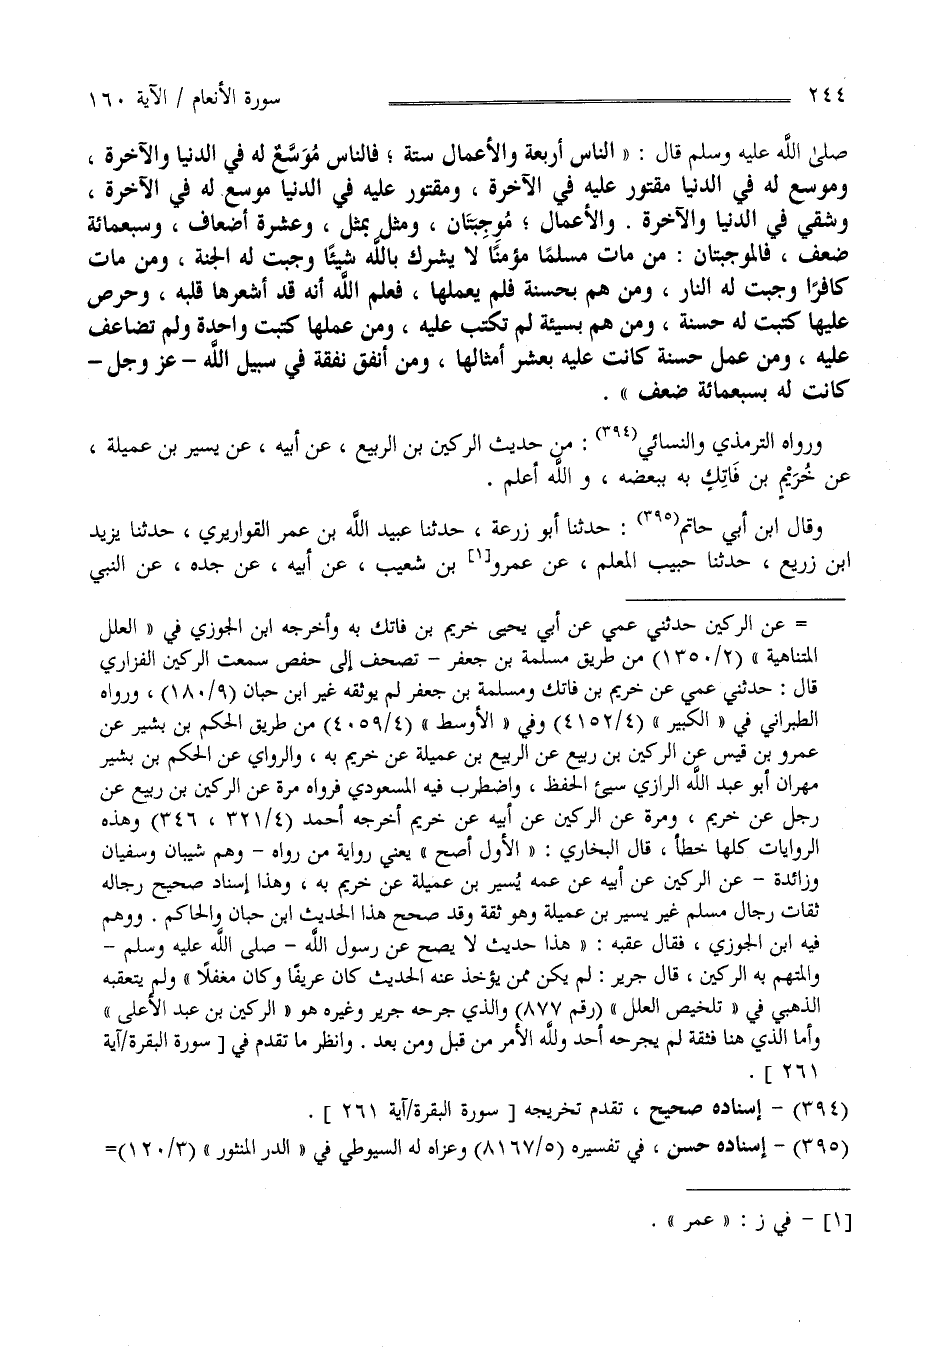 ٢٤٤ سورة الأنعام / الآية ١٦٠
صلى اللَّه عليه وسلم قال : « الناس أربعة والأعمال ستة ؛ فالناس مُوَسَّعٌ له في الدنيا والآخرة ،
وموسع له في الدنيا مقتور عليه في الآخرة ، ومقتور عليه في الدنيا موسع له في الآخرة ،
وشقي في الدنيا والآخرة . والأعمال ؛ مُوجِبَتَان ، ومثل بمثل ، وعشرة أضعاف ، وسبعمائة
ضعف ، فالموجبتان : من مات مسلمًا مؤمنًا لا يشرك باللَّه شيئًا وجبت له الجنة ، ومن مات
كافرًا وجبت له النار ، ومن هم بحسنة فلم يعملها ، فعلم اللَّه أنه قد أشعرها قلبه ، وحرص
عليها كتبت له حسنة ، ومن هم بسيئة لم تكتب عليه ، ومن عملها كتبت واحدة ولم تضاعف
عليه ، ومن عمل حسنة كانت عليه بعشر أمثالها ، ومن أنفق نفقة في سبيل اللَّه – عز وجل –
كانت له بسبعمائة ضعف » .
ورواه الترمذي والنسائي(٣٩٤) : من حديث الركين بن الربيع ، عن أبيه ، عن يسير بن عميلة ،
عن خُرَيْمِ بن فَاتِكٍ به ببعضه ، و اللَّه أعلم .
وقال ابن أبي حاتم(٣٩٥) : حدثنا أبو زرعة ، حدثنا عبيد اللَّه بن عمر القواريري ، حدثنا يزيد
ابن زريع ، حدثنا حبيب المعلم ، عن عمرو[١] بن شعيب ، عن أبيه ، عن جده ، عن النبي
= عن الركين حدثني عمي عن أبي يحيى خريم بن فاتك به وأخرجه ابن الجوزي في « العلل
المتناهية » (١٣٥٠/٢) من طريق مسلمة بن جعفر – تصحف إلى حفص سمعت الركين الفزاري
قال : حدثني عمي عن خريم بن فاتك ومسلمة بن جعفر لم يوثقه غير ابن حبان (١٨٠/٩) ، ورواه
الطبراني في « الكبير » (٤١٥٢/٤) وفي « الأوسط » (٤٠٥٩/٤) من طريق الحكم بن بشير عن
عمرو بن قيس عن الركين بن ربيع عن الربيع بن عميلة عن خريم به ، والرواي عن الحكم بن بشير
مهران أبو عبد اللَّه الرازي سيئ الحفظ ، واضطرب فيه المسعودي فرواه مرة عن الركين بن ربيع عن
رجل عن خريم ، ومرة عن الركين عن أبيه عن خريم أخرجه أحمد (٣٢١/٤ ، ٣٤٦) وهذه
الروايات كلها خطأ ، قال البخاري : « الأول أصح » يعني رواية من رواه – وهم شيبان وسفيان
وزائدة – عن الركين عن أبيه عن عمه يُسير بن عميلة عن خريم به ، وهذا إسناد صحيح رجاله
ثقات رجال مسلم غير يسير بن عميلة وهو ثقة وقد صحح هذا الحديث ابن حبان والحاكم . ووهم
فيه ابن الجوزي ، فقال عقبه : « هذا حديث لا يصح عن رسول اللَّه – صلى اللَّه عليه وسلم –
والمتهم به الركين ، قال جرير : لم يكن ممن يؤخذ عنه الحديث كان عريفًا وكان مغفلًا » ولم يتعقبه
الذهبي في « تلخيص العلل » (رقم ٨٧٧) والذي جرحه جرير وغيره هو « الركين بن عبد الأعلى »
وأما الذي هنا فثقة لم يجرحه أحد وللَّه الأمر من قبل ومن بعد . وانظر ما تقدم في [ سورة البقرة/آية
٢٦١ ] .
(٣٩٤) – إسناده صحيح ، تقدم تخريجه [ سورة البقرة/آية ٢٦١ ] .
(٣٩٥) – إسناده حسن ، في تفسيره (٨١٦٧/٥) وعزاه له السيوطي في « الدر المنثور » (١٢٠/٣)=
[١] – في ز : « عمر » .